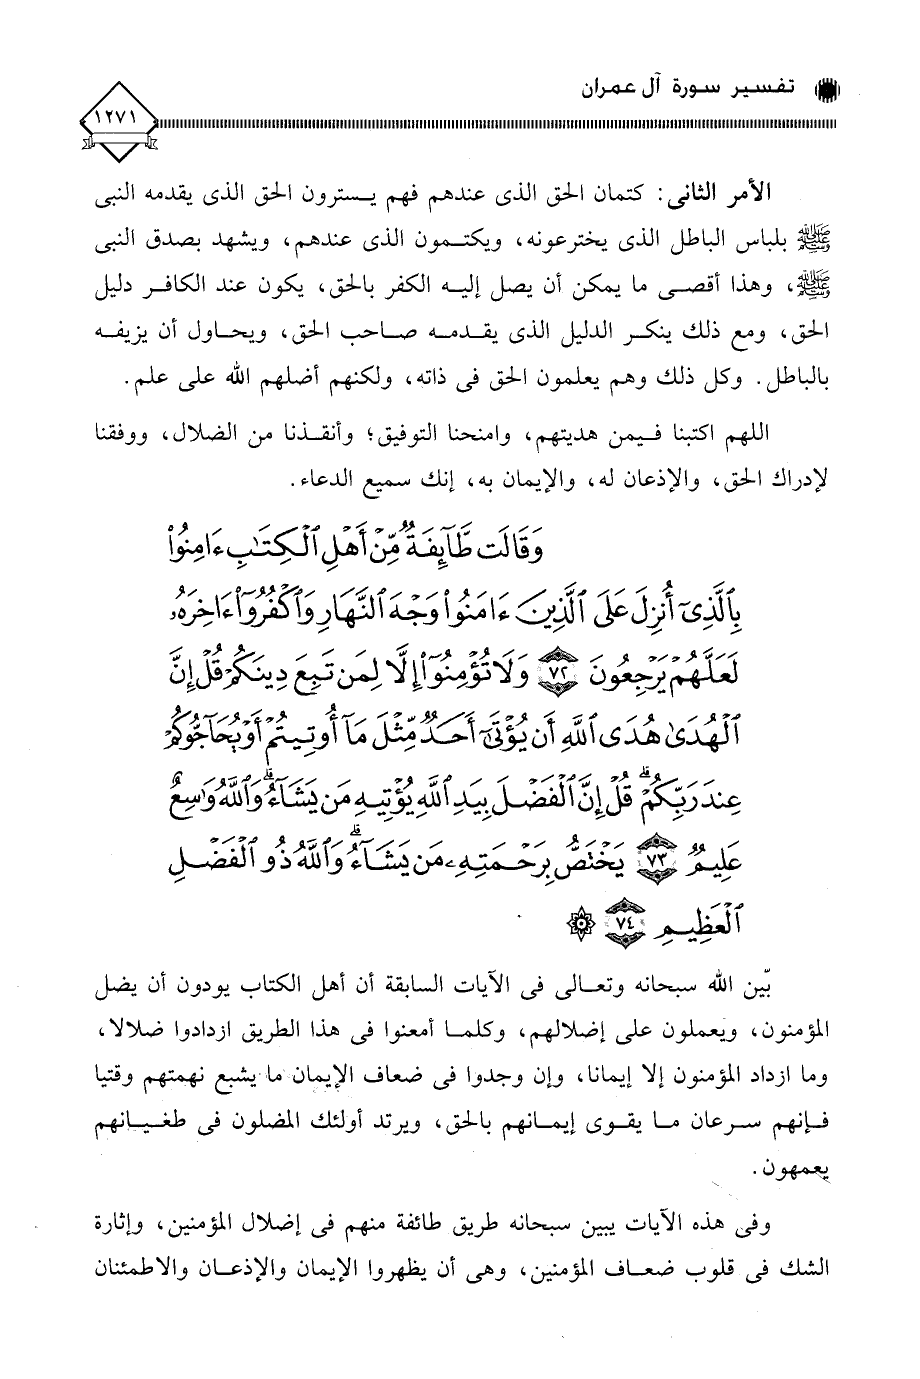 تفسير سورة آل عمران
١٢٧١
الأمر الثانى: كتمان الحق الذى عندهم فهم يسترون الحق الذى يقدمه النبى
ﷺ بلباس الباطل الذى يخترعونه، ويكتمون الذى عندهم، ويشهد بصدق النبى
ﷺ، وهذا أقصى ما يمكن أن يصل إليه الكفر بالحق، يكون عند الكافر دليل
الحق، ومع ذلك ينكر الدليل الذى يقدمه صاحب الحق، ويحاول أن يزيفه
بالباطل. وكل ذلك وهم يعلمون الحق فى ذاته، ولكنهم أضلهم الله على علم.
اللهم اكتبنا فيمن هديتهم، وامنحنا التوفيق؛ وأنقذنا من الضلال، ووفقنا
لإدراك الحق، والإذعان له، والإيمان به، إنك سميع الدعاء.
وَقَالَت طَّآئِفَةٌ مِّنْ أَهْلِ ٱلْكِتَٰبِ ءَامِنُوا۟
بِٱلَّذِىٓ أُنزِلَ عَلَى ٱلَّذِينَ ءَامَنُوا۟ وَجْهَ ٱلنَّهَارِ وَٱكْفُرُوٓا۟ ءَاخِرَهُۥ
لَعَلَّهُمْ يَرْجِعُونَ ٧٢ وَلَا تُؤْمِنُوٓا۟ إِلَّا لِمَن تَبِعَ دِينَكُمْ قُلْ إِنَّ
ٱلْهُدَىٰ هُدَى ٱللَّهِ أَن يُؤْتَىٰٓ أَحَدٌ مِّثْلَ مَآ أُوتِيتُمْ أَوْ يُحَآجُّوكُمْ
عِندَ رَبِّكُمْ ۗ قُلْ إِنَّ ٱلْفَضْلَ بِيَدِ ٱللَّهِ يُؤْتِيهِ مَن يَشَآءُ ۗ وَٱللَّهُ وَٰسِعٌ
عَلِيمٌ ٧٣ يَخْتَصُّ بِرَحْمَتِهِۦ مَن يَشَآءُ ۗ وَٱللَّهُ ذُو ٱلْفَضْلِ
ٱلْعَظِيمِ ٧٤
بيّن الله سبحانه وتعالى فى الآيات السابقة أن أهل الكتاب يودون أن يضل
المؤمنون، ويعملون على إضلالهم، وكلما أمعنوا فى هذا الطريق ازدادوا ضلالا،
وما ازداد المؤمنون إلا إيمانا، وإن وجدوا فى ضعاف الإيمان ما يشبع نهمتهم وقتيا
فإنهم سرعان ما يقوى إيمانهم بالحق، ويرتد أولئك المضلون فى طغيانهم
يعمهون.
وفى هذه الآيات يبين سبحانه طريق طائفة منهم فى إضلال المؤمنين، وإثارة
الشك فى قلوب ضعاف المؤمنين، وهى أن يظهروا الإيمان والإذعان والاطمئنان